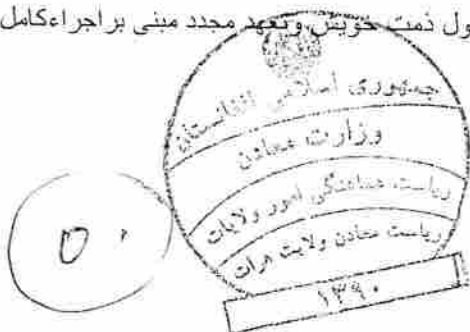 ول ذمت خویش وتعهد مجدد مبنی بر اجراءکامل
جمهوری اسلامی افغانستان
وزارت معادن
ریاست هماهنگی امور ولایات
ریاست معادن ولایت هرات
۱۳۹۰